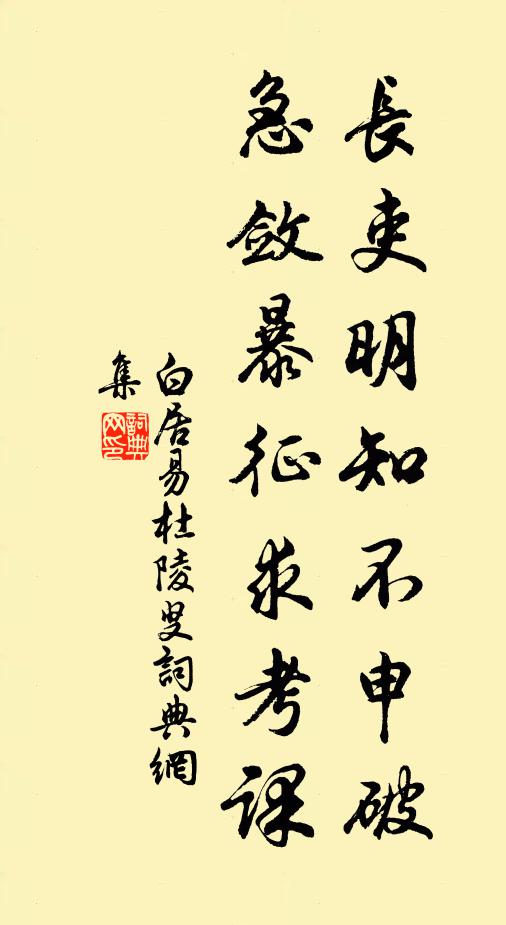 長吏明知不申破
急斂暴征求考課
白居易杜陵叟詞典網
集
詞典
网印